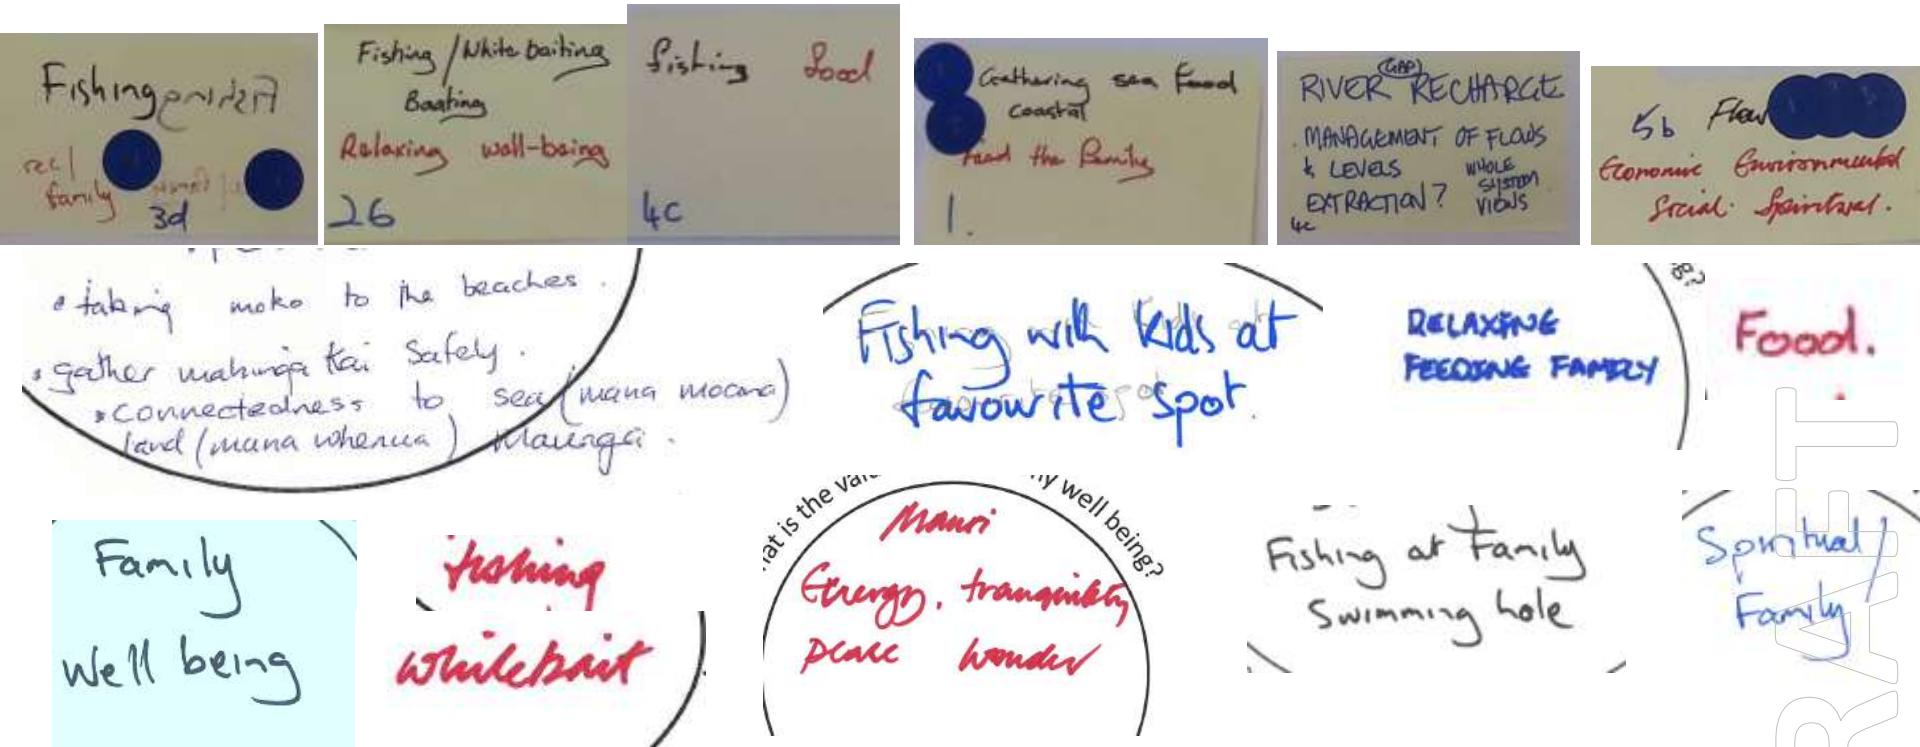 Fishing
rec/
family
3d
Fishing/White baiting
Boating
Relaxing well-being
26
fishing food
4c
Gathering sea Food
coastal
Feed the Family
1.
(GAP)
RIVER RECHARGE
. MANAGEMENT OF FLOWS
& LEVELS
EXTRACTION?
WHOLE
SYSTEM
VIEWS
4c
5b
Flow
Economic Environmental
Social. Spiritual.
• taking moko to the beaches.
• gather mahinga kai safely.
• connectedness to sea (mana moana)
land (mana whenua) Maunga.
Fishing with kids at
favourite spot.
RELAXING
FEEDING FAMILY
Food.
Family
Well being
fishing
whitebait
hat is the valu
ny well being?
Mauri
Energy, tranquility
peace wonder
Fishing at Family
Swimming hole
Spiritual/
Family
RAFT